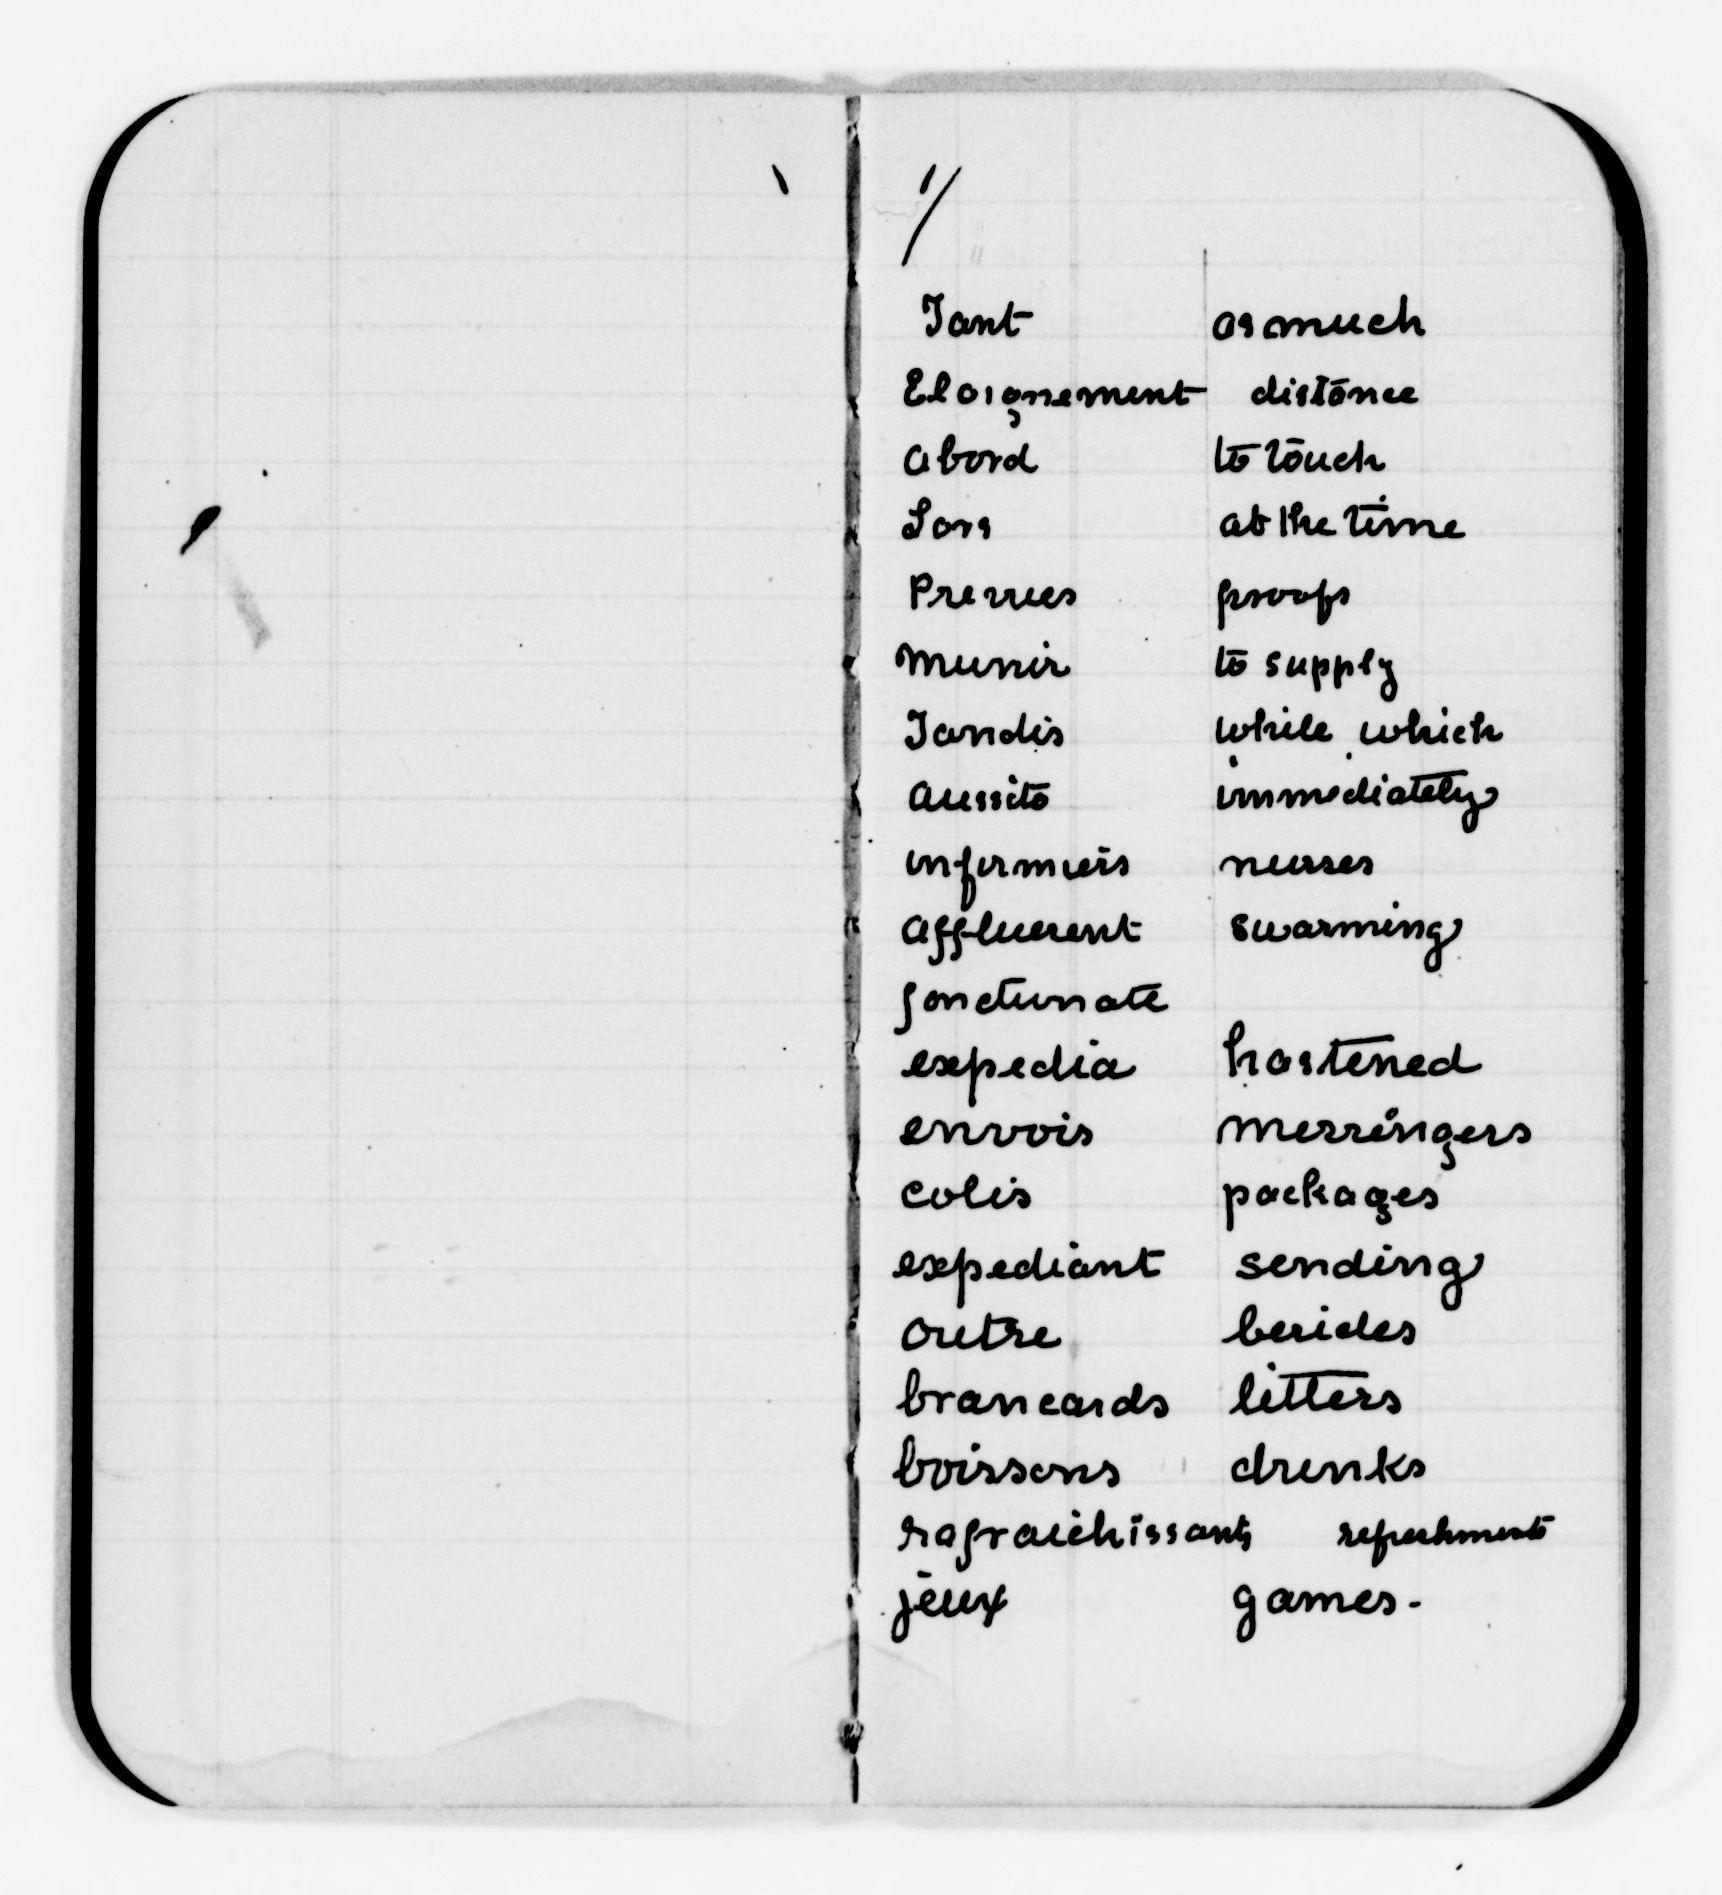 1/
Tant as much
Eloignement distance
abord to touch
Lors at the time
Preuves proofs
munir to supply
Tandis while which
aussito immediately
infirmiers nurses
affluerent swarming
fonctunate
expedia hastened
envois messingers
colis packages
expediant sending
outre besides
brancards litters
boissons drinks
rafraichissants refreshments
jeux games.